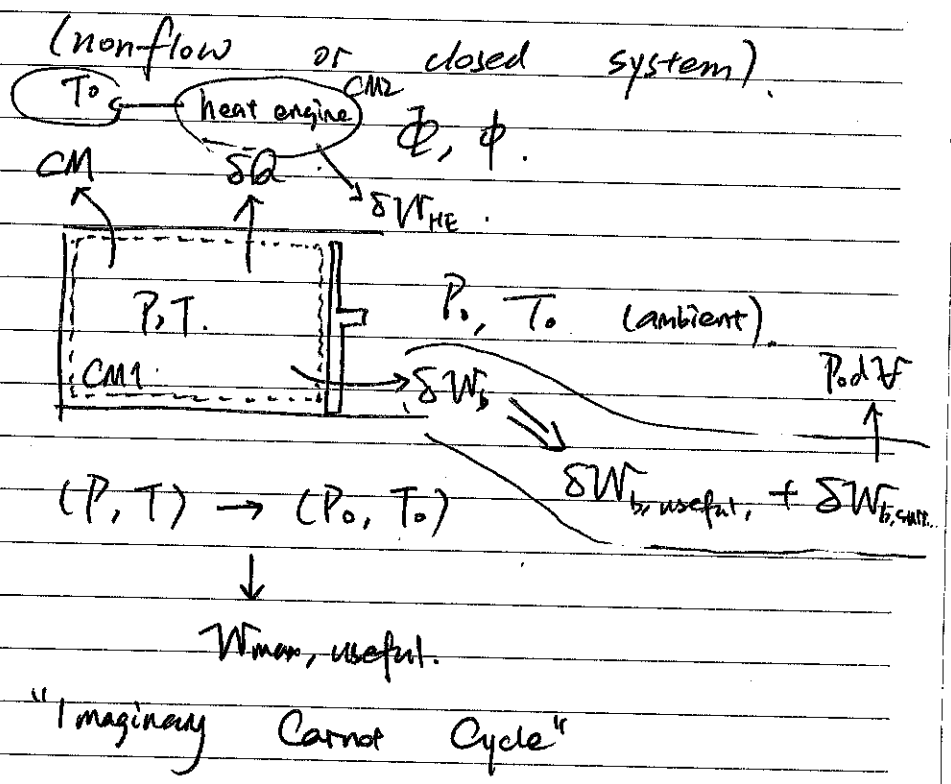 (nonflow or closed system).
T₀ heat engine CM2 Φ, φ.
CM δQ δW_HE.
P,T. P₀, T₀ (ambient).
CM1. δW_b P₀dV
(P, T) → (P₀, T₀) δW_b,useful, + δW_b,surr.
W_max, useful.
"Imaginary Carnot Cycle"